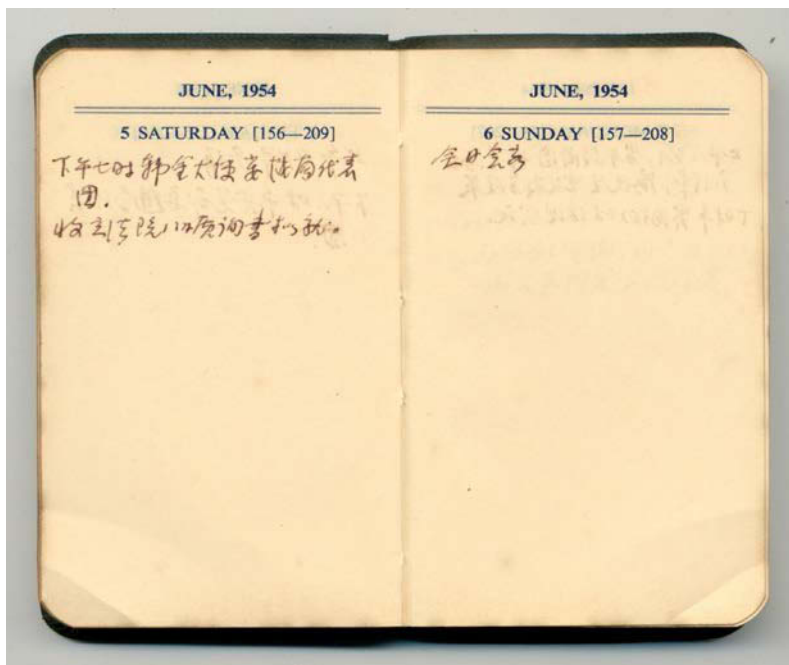 JUNE, 1954
5 SATURDAY [156—209]
下午七时韩金大使宴陆局代表
团.
收到法院
书
JUNE, 1954
6 SUNDAY [157—208]
全日会客